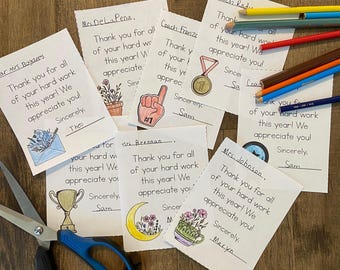 Mrs. DeLaPena,
Thank you for all
of your hard work
this year! We
appreciate you!
Sincerely,
Coach
Thank you for all
of your hard work
this year! We
appreciate you!
Sincerely,
Sam
Thank you for all
of your hard work
this year! We
appreciate you!
Sincerely,
Mrs.
Thank you for all
of your hard work
this year! We
appreciate you!
Sincerely,
#1
Thank you for all
of your hard work
this year! We
appreciate you!
Sincerely,
Sam
of your hard work
this year! We
appreciate you!
Sincerely,
Sam
Thank you for all
of your hard work
this year! We
appreciate you!
Sincerely,
Mrs. Johnson,
Thank you for all
of your hard work
this year! We
appreciate you!
Sincerely,